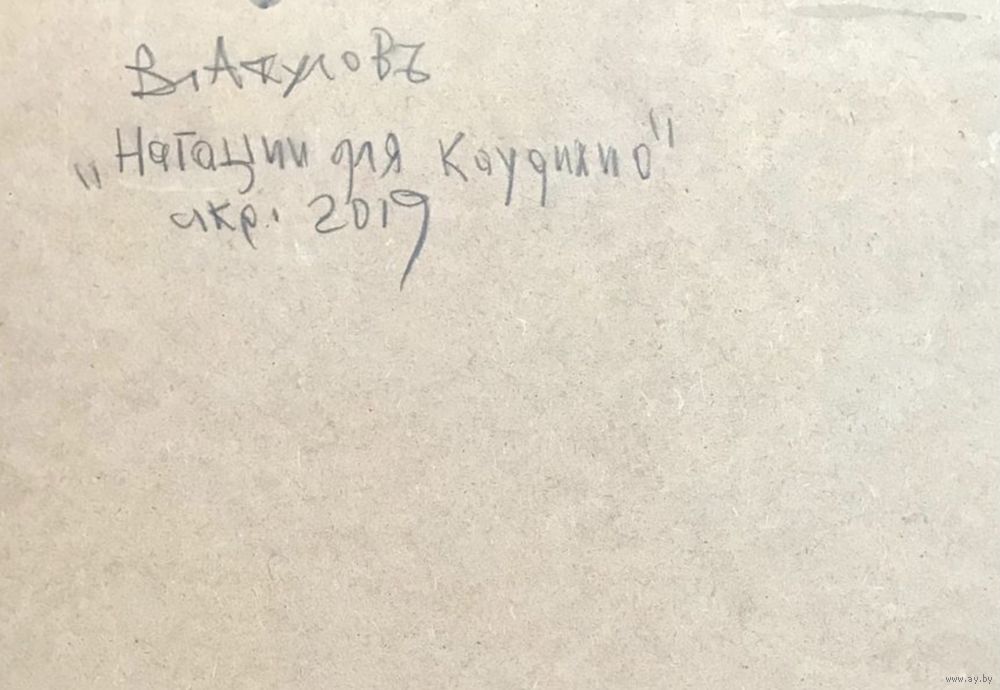 Вл. Акуловъ
"Натации для Каудилио"
акр. 2019
www.ay.by